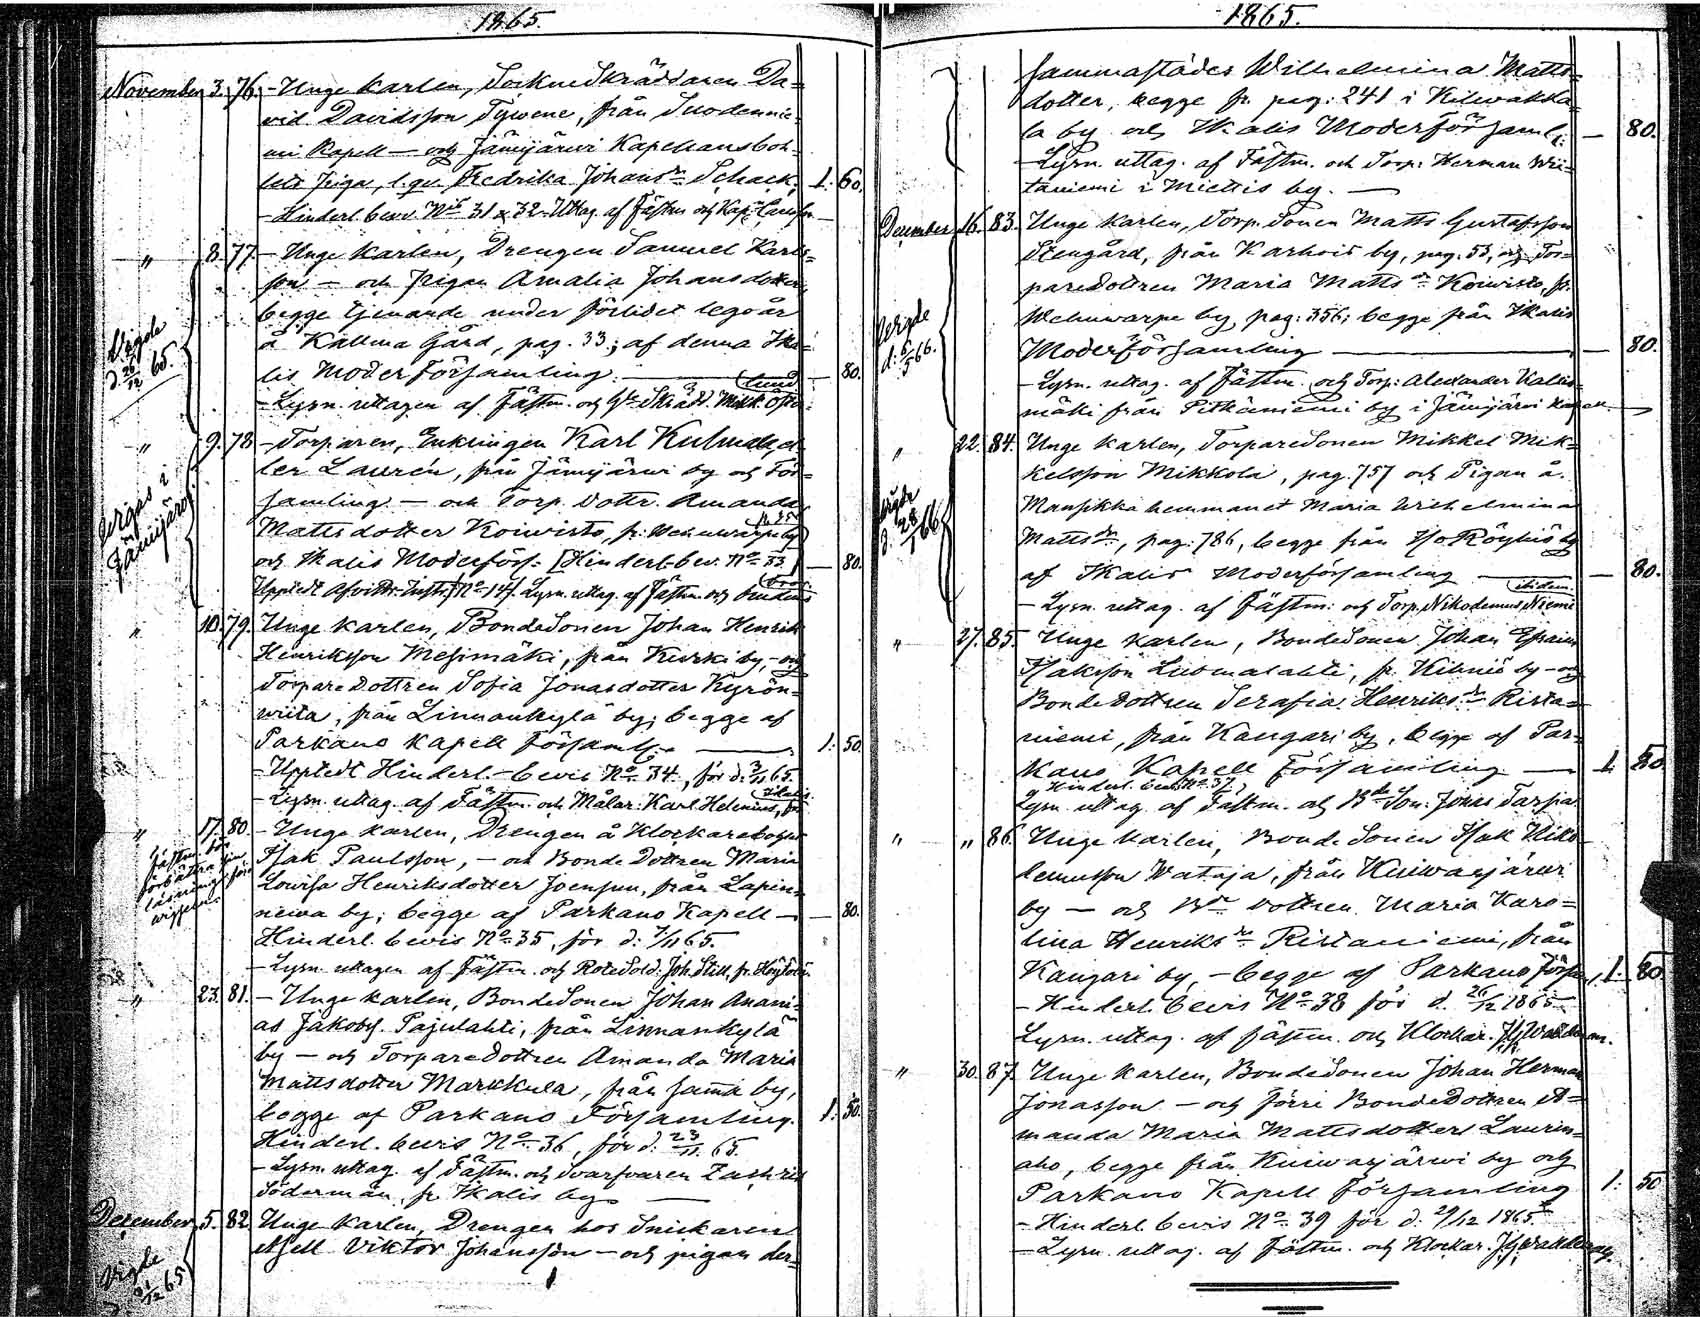 1865.
November 3. 76. - Unge karlen, SockneSkräddaren Da=
vid Davidsson Tywene, från Suodennie-
mi Kapell - och Jämijärwi Kapellansbohl-
lets Piga, Fredrika Johansdr Schack. 1. 60.
- Hinderl. bevis Nis 31 & 32. Uttag. af Fästm och
" 8. 77. - Unge karlen, Drengen Samuel Karls=
son - och Pigan Amalia Johansdotter
begge tjenande under förlidet legoår
å Kallma Gård, pag. 33; af denna Ika=
lis Moderförsamling. - 80.
- Lysn. uttagen af Fästm. och Skrädd. Mikk. Öster=
lund
Vigde
d. 26/12 65.
" 9. 78. - Torparen, Enklingen Karl Kulmala, el-
ler Laurén, från Jämijärwi by och För-
samling - och Torp. Dottr. Amanda
Mattsdotter Koiwisto, fr. Wehuwarpe by
och Ikalis Moderförs. [Hinderl. bev. No 33.] - 80.
No 141. Lysn. uttag. af Fästm. och brudens
Vigas i
Jämijärvi.
" 10. 79. Unge karlen, BondeSonen Johan Henrik
Henriksson Mesimäki, från Kurki by, - och
TorpareDottren Sofia Jonasdotter Kyrön-
wiita, från Linnankylä by; begge af
Parkano Kapell Församl. 1. 50.
- Upptedt Hinderl. - bevis No 34, för d. 3/11 65.
- Lysn. uttag. af Fästm. och Målar. Karl Helenius, fr.
Ikalis
" 17. 80. - Unge karlen, Drengen å Klockarebolet
Isak Paulsson, - och BondeDottren Maria
Lovisa Henriksdotter Joensuu, från Lapin-
neiwa by; begge af Parkano Kapell - 80.
Hinderl. bevis No 35, för d. 7/11 65.
- Lysn. uttagen af Fästm. och RoteSold. Joh. Still, fr.
Fästm. bör
förbättra sin
läsning före
wigseln.
" 23. 81. - Unge karlen, BondeSonen Johan Anani-
as Jakobs. Pajulahti, från Linnankylä
by - och TorpareDottren Amanda Maria
Mattsdotter Markkula, från sama by,
begge af Parkano Församling. 1. 50.
Hinderl. bevis No 36, för d. 23/11 65.
- Lysn. uttag. af Fästm. och Svarfvaren Zachris
Söderman, fr. Ikalis by.
December 5. 82. Unge karlen, Drengen hos Snickaren
Asell Viktor Johansson - och pigan der=
Vigde
d. 31/12 65
1865.
sammastädes Wilhelmina Matts=
dotter, begge fr. pag: 241 i Kilwakka=
la by och Ikalis Moderförsaml: - 80.
- Lysn. uttag. af Fästm. och Torp. Herman Wii-
taniemi i Miettis by. -
December 16. 83. Unge karlen, Torp. Sonen Matts Gustafsson
Stengård, från Karhois by, pag: 53, och Tor=
pareDottren Maria Mattsdr Koiwisto, fr.
Wehuwarpe by, pag: 356; begge från Ikalis
Moderförsamling - 80.
- Lysn. uttag. af Fästm. och Torp: Alexander Kallio-
mäki från Pitkäniemi by i Jämijärwi Kapell.
Vigde
d. 5/5 66.
" 22. 84. Unge karlen, TorpareSonen Mikkel Mik-
kelsson Mikkola, pag. 757 och Pigan å
Mansikka hemmanet Maria Wilhelmina
Mattsdr, pag: 786, begge från Röyhiö by
af Ikalis Moderförsamling - 80.
- Lysn. uttag. af Fästm: och Torp. Nikodemus Niemi
ibidem
Vigde
d. 28/1 66
" 27. 85. Unge karlen, BondeSonen Johan Efraim
Isaksson Luomalahti, fr. Kihniö by - och
BondeDottren Serafia Henriksdr Rista=
niemi, från Kangari by, begge af Par-
kano Kapell Församling - 1. 50
Hinderl. bevis No 37,
Lysn. uttag. af Fästm. och Bde Son. Jonas Tarpa
" " 86. Unge karlen, BondeSonen Isak Niko-
lemusson Wataja, från Kuiwasjärwi
by - och Bde Dottren Maria Karo=
lina Henriksdr Ristaniemi, från
Kangari by, - begge af Parkano Försam. 1. 80
- Hinderl. bevis No 38 för d. 26/12 1865.
Lysn. uttag. af fästm. och Klockar.
" 30. 87. Unge karlen, BondeSonen Johan Herman
Jonasson - och förre BondeDottren A=
manda Maria Mattsdotter Laurin-
aho, begge från Kuiwasjärwi by och
Parkano Kapell Församling 1. 50
- Hinderl. bevis No 39 för d. 29/12 1865.
- Lysn. uttag. af Fästm. och Klockar.